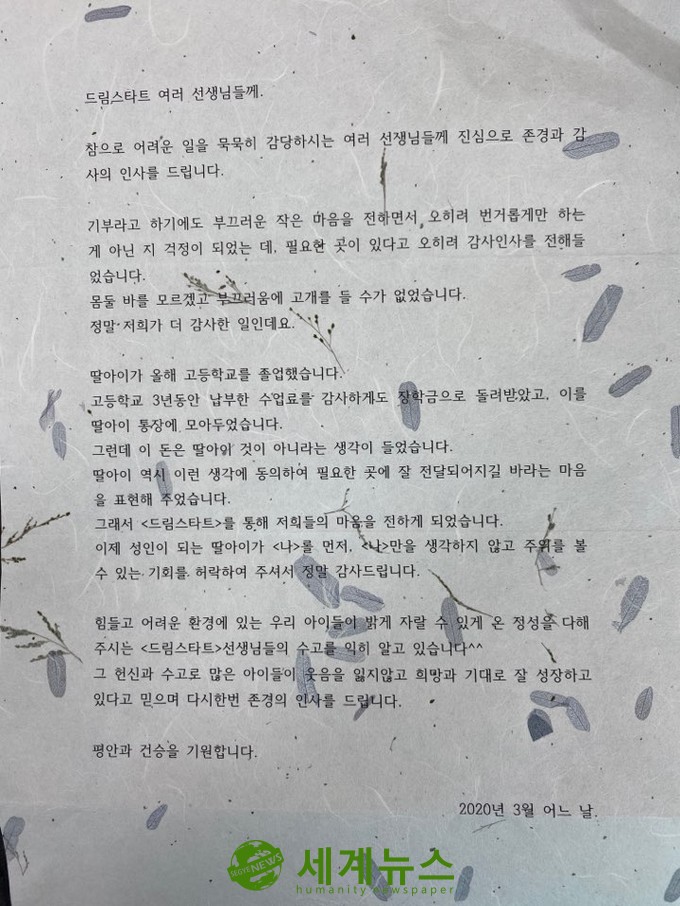 드림스타트 여러 선생님들께.
참으로 어려운 일을 묵묵히 감당하시는 여러 선생님들께 진심으로 존경과 감
사의 인사를 드립니다.
기부라고 하기에도 부끄러운 작은 마음을 전하면서, 오히려 번거롭게만 하는
게 아닌 지 걱정이 되었는 데, 필요한 곳이 있다고 오히려 감사인사를 전해들
었습니다.
몸둘 바를 모르겠고 부끄러움에 고개를 들 수가 없었습니다.
정말 저희가 더 감사한 일인데요.
딸아이가 올해 고등학교를 졸업했습니다.
고등학교 3년동안 납부한 수업료를 감사하게도 장학금으로 돌려받았고, 이를
딸아이 통장에 모아두었습니다.
그런데 이 돈은 딸아이 것이 아니라는 생각이 들었습니다.
딸아이 역시 이런 생각에 동의하여 필요한 곳에 잘 전달되어지길 바라는 마음
을 표현해 주었습니다.
그래서 <드림스타트>를 통해 저희들의 마음을 전하게 되었습니다.
이제 성인이 되는 딸아이가 <나>를 먼저, <나>만을 생각하지 않고 주위를 볼
수 있는 기회를 허락하여 주셔서 정말 감사드립니다.
힘들고 어려운 환경에 있는 우리 아이들이 밝게 자랄 수 있게 온 정성을 다해
주시는 <드림스타트>선생님들의 수고를 익히 알고 있습니다^^
그 헌신과 수고로 많은 아이들이 웃음을 잃지않고 희망과 기대로 잘 성장하고
있다고 믿으며 다시한번 존경의 인사를 드립니다.
평안과 건승을 기원합니다.
2020년 3월 어느 날.
SEGYE NEWS
세계뉴스
humanity newspaper